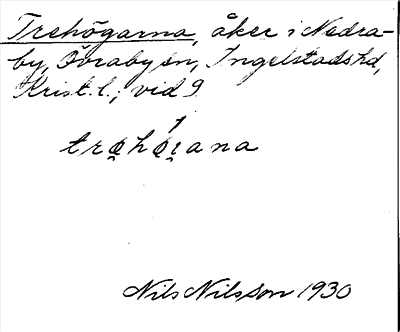 Trehögarna, åker i Nedra-
by, Örabysn, Ingelstads hd,
Krist. l.; vid 9
Nils Nilsson 1930